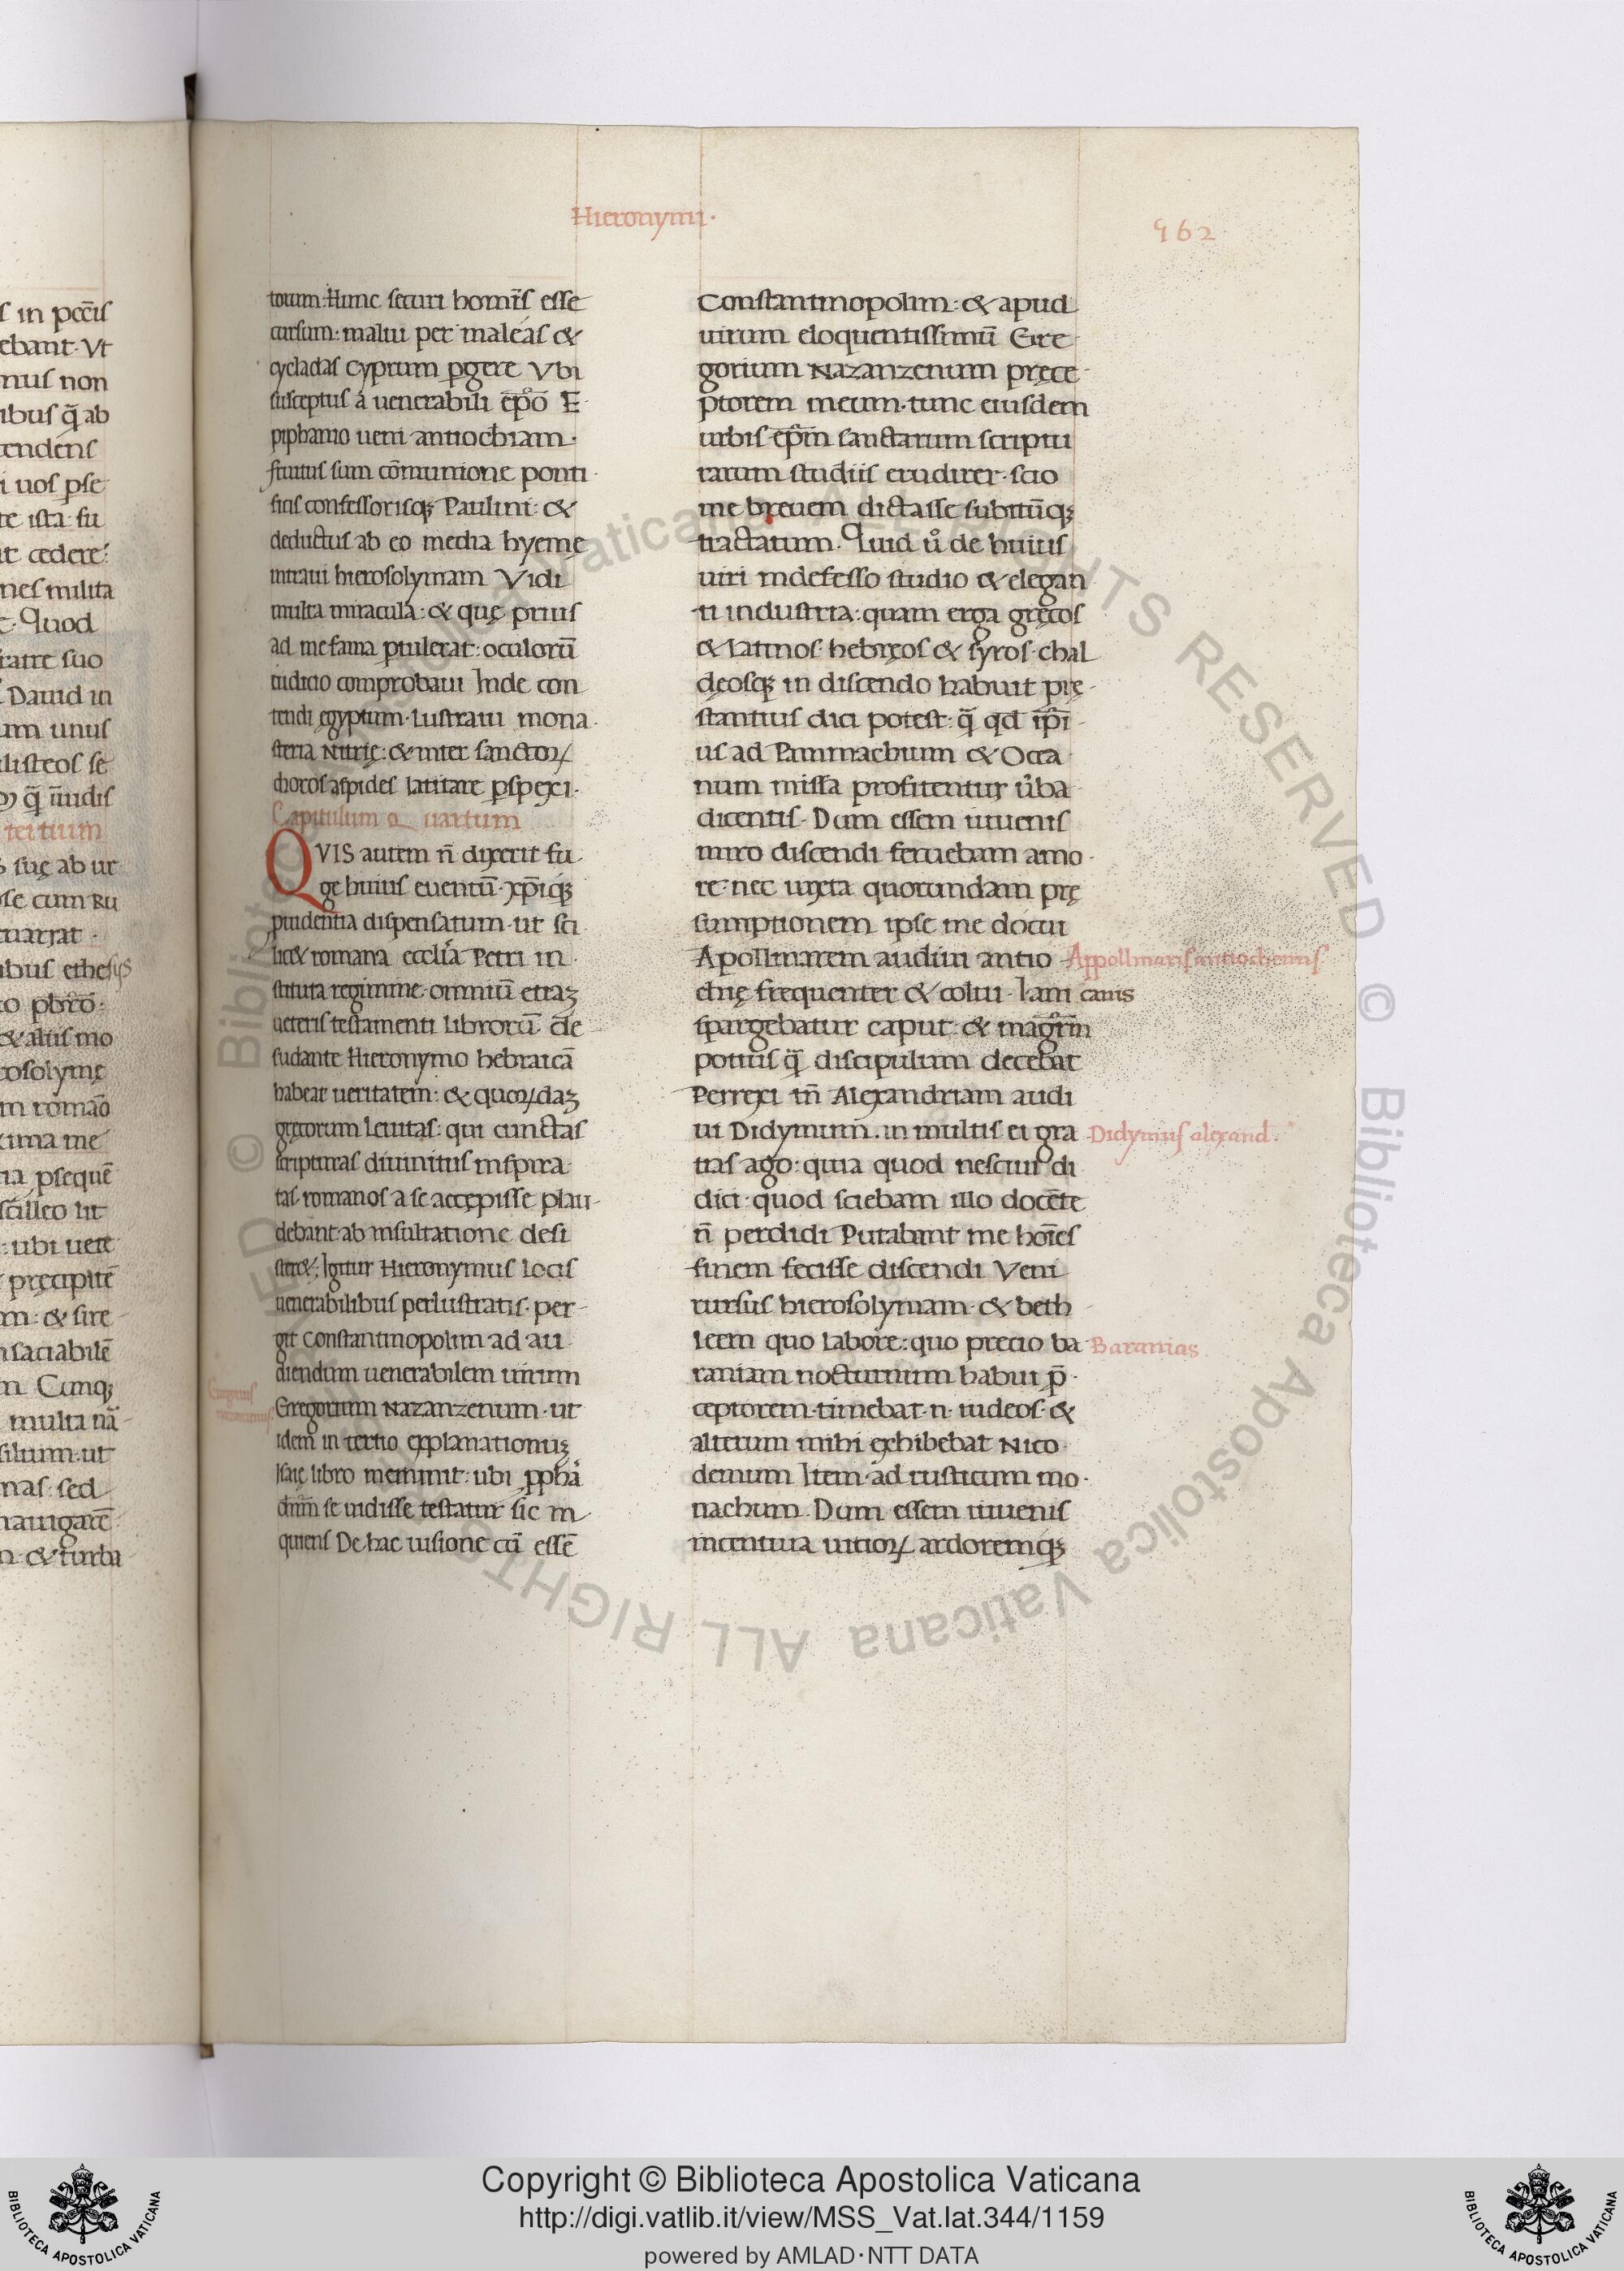 Hieronymi·
962
s in pccis
ebant· Vt
mus non
ibus q̄ ab
tendens
i uos pse
te ista· fu
it cedere:
nes milita
Quod
ratre suo
Dauid in
um unus
ilisteos se
q̄ iudis
tertium
s suę ab ur
se cum Ru
narrat·
ibus ethesys
to pbro·
& aliis mo
rosolymę
m romāo
ima me
ia psequē
: ubi uere
pręcipitē
m: & sire
nsaciabilē
n Cunq;
multa nā
silium· ut
nas: sed
nauigarē
n· & turba
totum: Hunc securi hominis esse
cursum: malui per maleas &
cycladas Cyprum pgere Vbi
susceptus á uenerabili ep̄o E
piphanio ueni antiochiam·
fruitus sum cōmunione ponti
ficis confessorisq; Paulini: &
deductus ab eo media hyemę
intraui hierosolymam Vidi
multa miracula: & quę prius
ad me fama ptulerat: oculorū
iudicio comprobaui Inde con
tendi ęgyptum· Lustraui mona
steria Nitrię: & inter sanctoꝝ
choros aspides latitare pspexi·
Capitulum quartum
QVIS autem n̄ dixerit fu
ge huius euentū· xp̄iq;
prudentia dispensatum· ut sci
lic& romana ecclīa Petri in
stituta regimine· omniū etiaʒ
ueteris testamenti librorū de
sudante Hieronymo hebraicā
habeat ueritatem: & quoꝝdaʒ
gręcorum leuitas: qui cunctas
scripturas diuinitus inspira
tas· romanos a se accępisse plau
debant· ab insultatione desi
ster&: Igitur Hieronymus locis
uenerabilibus perlustratis· per
git Constantinopolim ad au
diendum uenerabilem uirum
Gregorium Nazanzenum· ut
idem in tertio explanationuʒ
Isaię libro meminit: ubi ꝓphā
dnm̄ se uidisse testatur sic in
quiens De hac uisione cū essē
Constantinopolim: & apud
uirum eloquentissimū Gre
gorium Nazanzenum pręce
ptorem meum· tunc eiusdem
urbis ep̄m sanctarum scriptu
rarum studiis erudirer· scio
me breuem dictasse subitūq;
tractatum. Quid ů de huius
uiri indefesso studio & elegan
ti industria: quam erga gręcos
& latinos· hebręos & syros· chal
dęosq; in discendo habuit prę
stantius dici potest: q̄ qd ip̄i
us ad Pammachium & Occa
num missa profitentur u̇ba
dicentis· Dum essem iuuenis
miro discendi ferebam amo
re: nec iuxta quorundam prę
sumptionem ipse me docui
Apollinarem audiui antio
chię frequenter & colui· Iam canis
spargebatur caput: & magrm̄
potius q̄ discipulum decebat
Perrexi tn̄ Alexandriam audi
ui Didymum. in multis ei gra
tias ago: quia quod nesciui di
dici: quod sciebam illo docēte
n̄ perdidi Putabant me hoīes
finem fecisse discendi Veni
rursus hierosolymam· & beth
leem quo labore: quo precio ba
raniam nocturnum habui p̄
ceptorem· timebat· n· iudeos· &
alterum mihi exhibebat Nico
demum Item· ad rusticum mo·
nachum· Dum essem iuuenis
incentiua uitioꝝ ardoremq;
Appollinaris antiochenus
Didymus alexand.
Baranias
Copyright © Biblioteca Apostolica Vaticana
http://digi.vatlib.it/view/MSS_Vat.lat.344/1159
powered by AMLAD·NTT DATA
BIBLIOTECA APOSTOLICA VATICANA
BIBLIOTECA APOSTOLICA VATICANA
© Biblioteca Apostolica Vaticana ALL RIGHTS RESERVED © Biblioteca Apostolica Vaticana ALL RIGHTS RESERVED